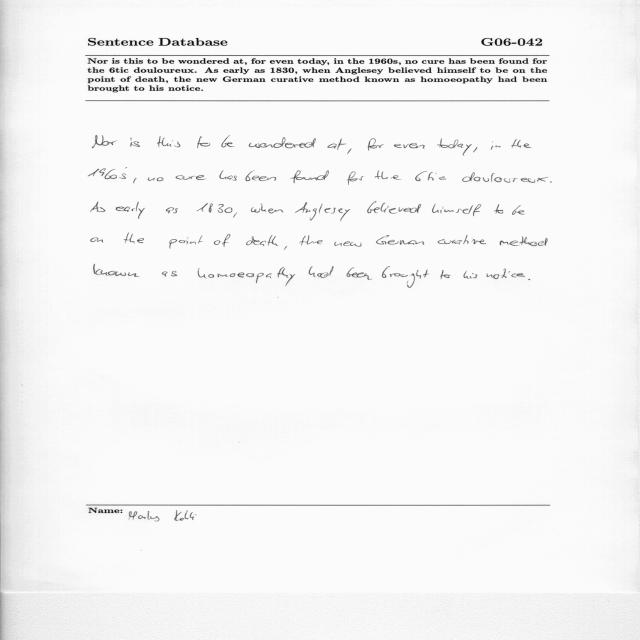 Sentence Database G06-042
Nor is this to be wondered at, for even today, in the 1960s, no cure has been found for
the 6tic douloureux. As early as 1830, when Anglesey believed himself to be on the
point of death, the new German curative method known as homoeopathy had been
brought to his notice.
Nor is this to be wondered at, for even today, in the
1960s, no cure has been found for the 6tic douloureux.
As early as 1830, when Anglesey believed himself to be
on the point of death, the new German curative method
known as homoeopathy had been brought to his notice.
Name: